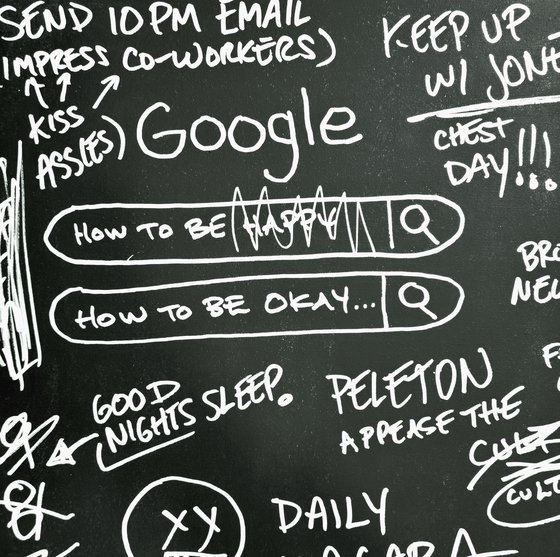 SEND 10PM EMAIL
(IMPRESS CO-WORKERS)
KISS
ASS(ES)
KEEP UP
W/ JONE
Google
CHEST
DAY!!!
HOW TO BE HAPPY
HOW TO BE OKAY...
BRO
NEW
GOOD
NIGHTS SLEEP.
PELETON
APPEASE THE
CULT
CULT
DAILY